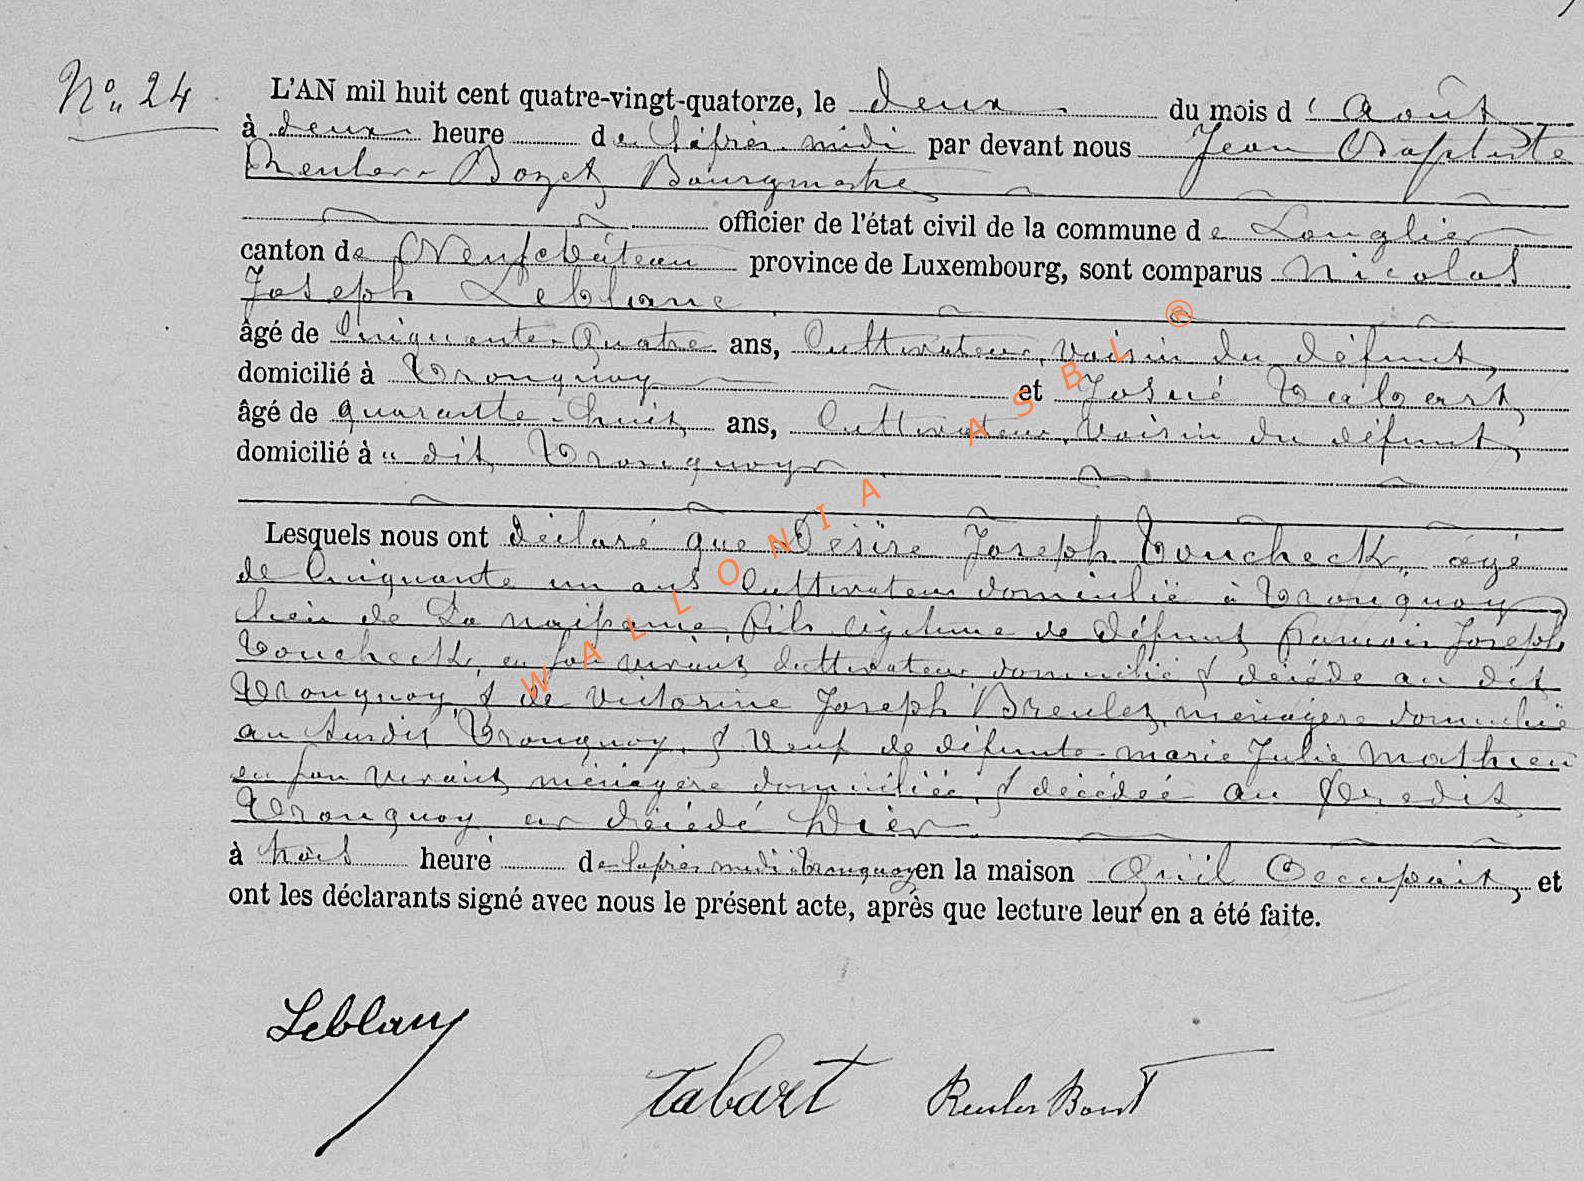 N° 24
L'AN mil huit cent quatre-vingt-quatorze, le deux du mois d' Août
à deux heure de l'après-midi par devant nous Jean Baptiste
Reuler-Bozet Bourgmestre
officier de l'état civil de la commune de Longlier
canton de Neufchâteau province de Luxembourg, sont comparus Nicolas
Joseph Leblanc
âgé de Cinquante-Quatre ans, Cultivateur, voisin du défunt,
domicilié à Tronquoy et Josué Tabart,
âgé de quarante-huit ans, Cultivateur, voisin du défunt,
domicilié à u dit Tronquoy
Lesquels nous ont déclaré que Désiré Joseph Toucheck, âgé
de Cinquante un ans Cultivateur domicilié à Tronquoy
lieu de Sa naissance, fils légitime de défunt francois Joseph
Toucheck, en son vivant Cultivateur, domicilié & décédé au dit
Tronquoy, & de Victorine Joseph Breulet, ménagère domiciliée
au Susdit Tronquoy, & Veuf de défunte marie Julie Mathieu
en son vivant, ménagère domiciliée, & décédée au Predit
Tronquoy est décédé hier
à trois heure de l'après midi à Tronquoy en la maison Qu'il Occupait, et
ont les déclarants signé avec nous le présent acte, après que lecture leur en a été faite.
Leblanc
Tabart Reuler Bozet
WALLONIA ASBL ®